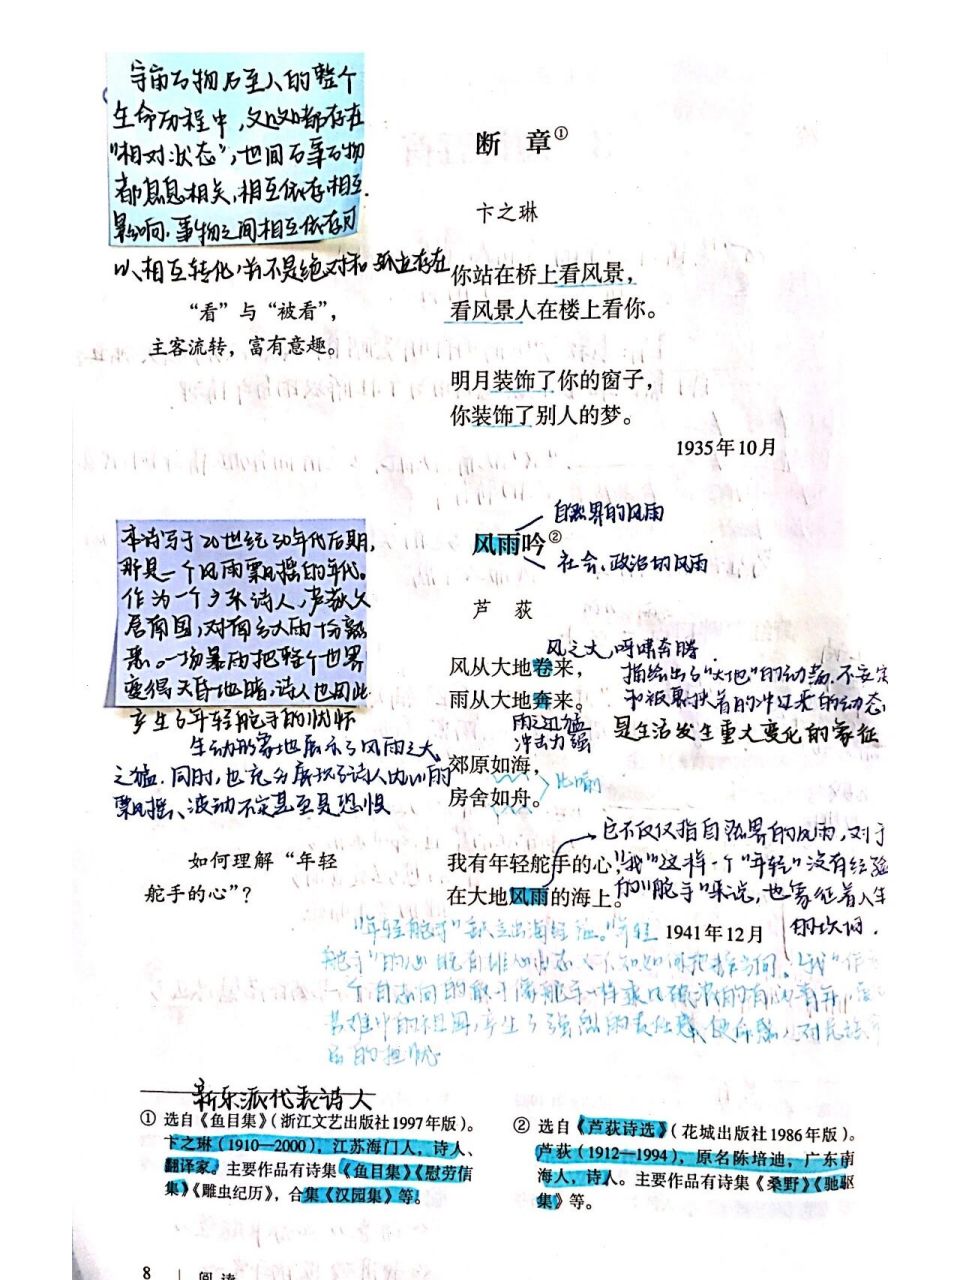 宇宙万物乃至人的整个
生命历程中,处处都存在
"相对状态",世间万事万物
都息息相关,相互依存相互
影响.事物之间相互依存可
以相互转化,并不是绝对和孤立存在
断 章①
卞之琳
你站在桥上看风景,
看风景人在楼上看你。
“看”与“被看”,
主客流转,富有意趣。
明月装饰了你的窗子,
你装饰了别人的梦。
1935年10月
自然界的风雨
风雨吟②
社会、政治的风雨
芦 荻
本诗写于20世纪30年代后期,
那是一个风雨飘摇的年代。
作为一个 诗人,芦荻久
居南国,对 风雨十分熟
悉。一场暴雨把整个世界
变得天昏地暗,诗人也因此
产生了年轻舵手的忧怀
风之大,呼啸奔腾
风从大地卷来,
雨从大地奔来。
雨之迅猛
冲击力强
描绘出了"大地"的动荡.不安定
和被裹挟着的冲过来的动态,
是生活发生重大变化的象征
生动形象地展示了风雨之大
之猛.同时,也充分展现了诗人内心的
飘摇、波动不定甚至是恐惧
郊原如海,
房舍如舟。
比喻
它不仅仅指自然界的风雨,对于
"我"这样一个"年轻"没有经验
的"舵手"来说,也象征着人生
的坎坷.
如何理解“年轻
舵手的心”?
我有年轻舵手的心,
在大地风雨的海上。
1941年12月
"年轻舵手"缺乏出海经验。"年轻
舵手"的心既有雄心壮志又不知如何把握方向。"我"作
一个 的 像舵手一样乘风破浪的有 青年,
苦难中的祖国,产生了强烈的责任感、使命感,对民族
的担忧
新乐派代表诗人
① 选自《鱼目集》(浙江文艺出版社1997年版)。
卞之琳(1910—2000),江苏海门人,诗人、
翻译家。主要作品有诗集《鱼目集》《慰劳信
集》《雕虫纪历》,合集《汉园集》等。
② 选自《芦荻诗选》(花城出版社1986年版)。
芦荻(1912—1994),原名陈培迪,广东南
海人,诗人。主要作品有诗集《桑野》《驰驱
集》等。
8 | 阅 读